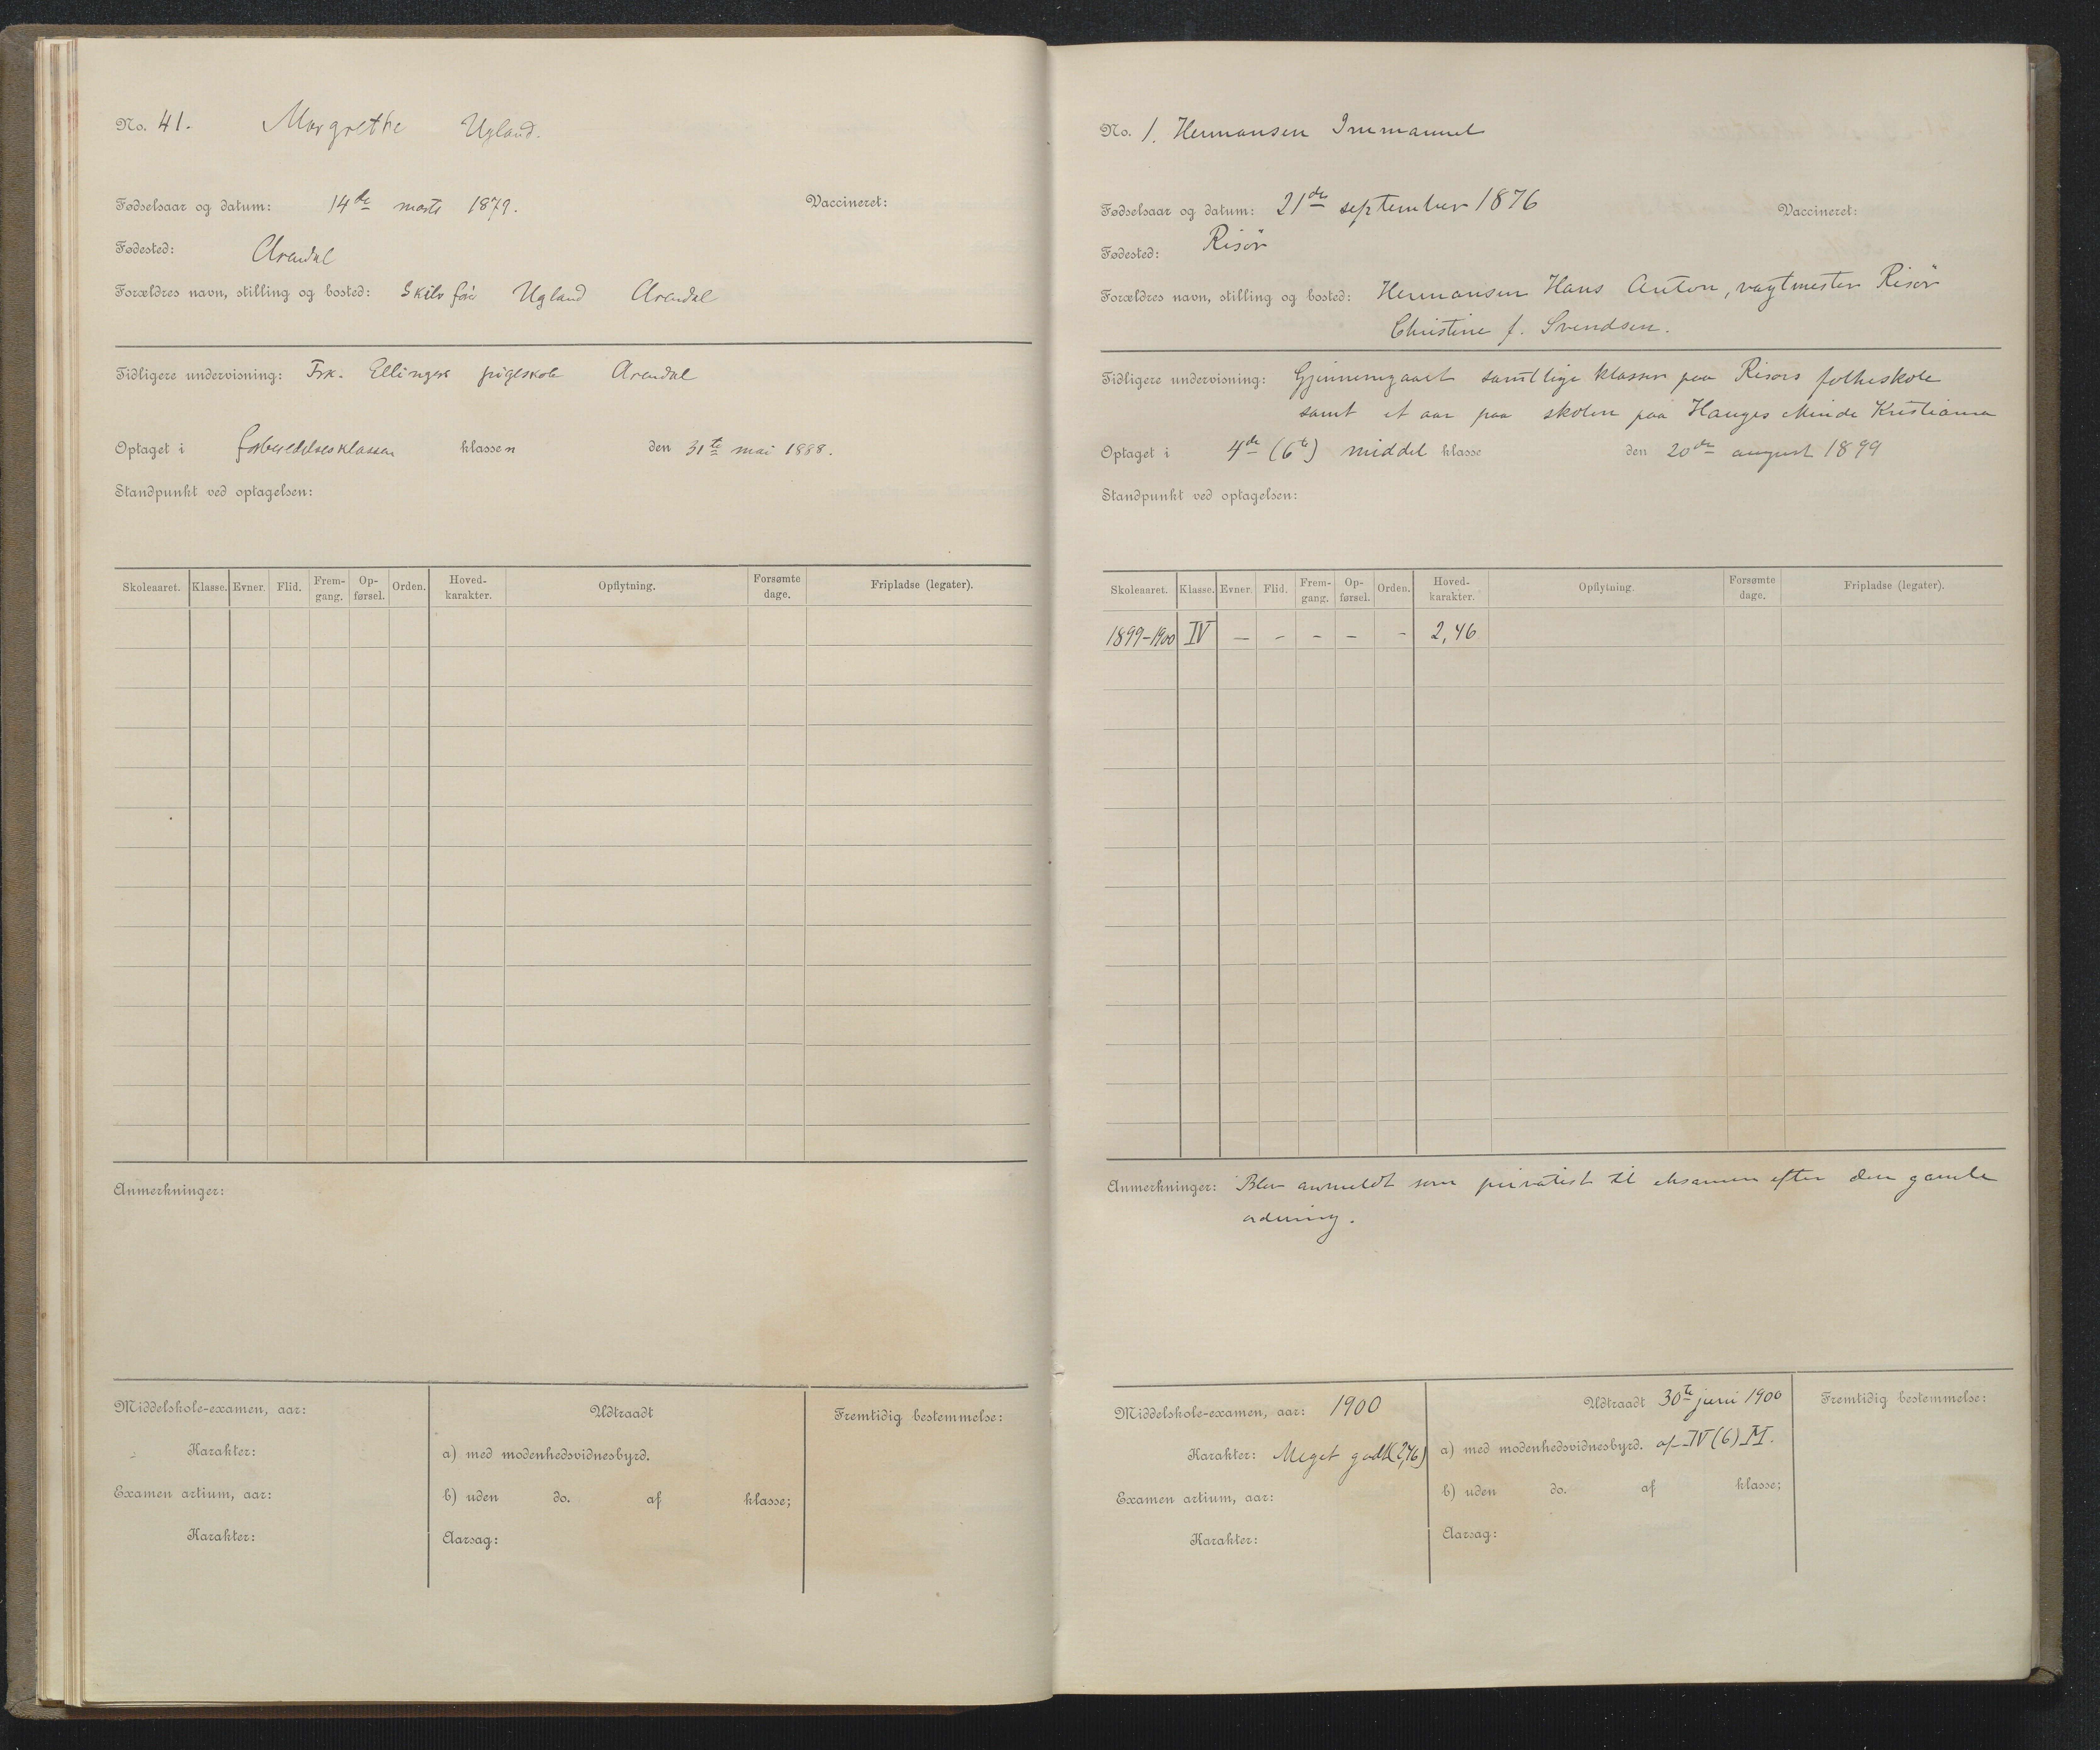 No. 41. Margrethe Ugland.
Fødselsaar og datum: 14de marts 1879. Vaccineret:
Fødested: Arendal
Forældres navn, stilling og bosted: Ugland Arendal
Tidligere undervisning: Frk. Ellingers pigeskole Arendal
Optaget i forberedelsesklassen klassen den 31te mai 1888.
Standpunkt ved optagelsen:
Skoleaaret. Klasse. Evner. Flid. Frem-gang. Op-førsel. Orden. Hoved-karakter. Opflytning. Forsømte dage. Fripladse (legater).
Anmerkninger:
Middelskole-examen, aar:
Karakter:
Examen artium, aar:
Karakter:
Udtraadt
a) med modenhedsvidnesbyrd.
b) uden do. af klasse;
Aarsag:
Fremtidig bestemmelse:
No. 1. Hermansen Immanuel
Fødselsaar og datum: 21de september 1876 Vaccineret:
Fødested: Risör
Forældres navn, stilling og bosted: Hermansen Hans Anton, vagtmester Risör
Christine f. Svendsen.
Tidligere undervisning: Gjennemgaaet samtlige klasser paa Risörs folkeskole
samt et aar paa skolen paa Hauges Minde Kristiania
Optaget i 4de (6te) middel klasse den 20de august 1899
Standpunkt ved optagelsen:
Skoleaaret. Klasse. Evner. Flid. Frem-gang. Op-førsel. Orden. Hoved-karakter. Opflytning. Forsømte dage. Fripladse (legater).
1899-1900 IV – – – – – 2,46
Anmerkninger: Blev anmeldt som privatist til eksamen efter den gamle
ordning.
Middelskole-examen, aar: 1900
Karakter: Meget godt (2,46)
Examen artium, aar:
Karakter:
Udtraadt 30te juni 1900
a) med modenhedsvidnesbyrd. af IV (6) M.
b) uden do. af klasse;
Aarsag:
Fremtidig bestemmelse: